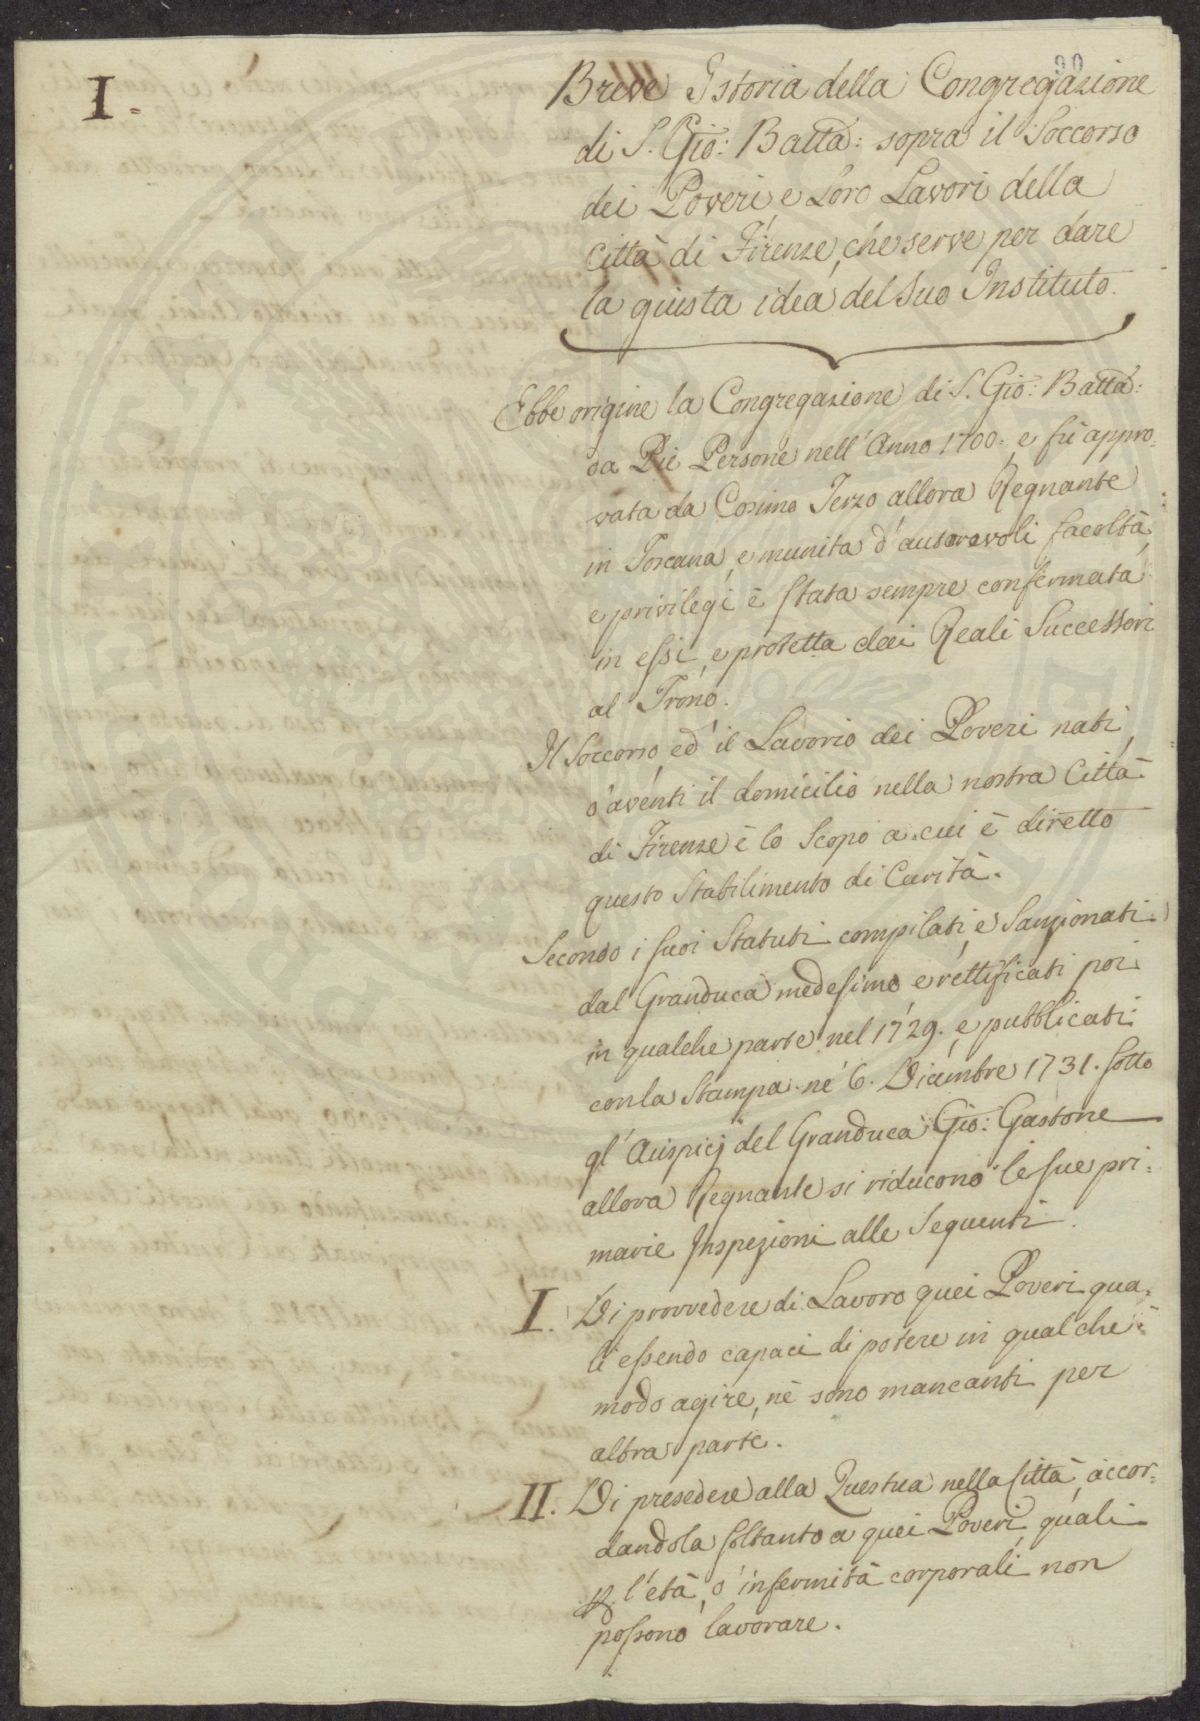 I.
90
Breve Istoria della Congregazione
di S. Gio: Batta: sopra il Soccorso
dei Poveri e Loro Lavori della
Città di Firenze, che serve per dare
la giusta idea del suo Instituto.
Ebbe origine la Congregazione di S. Gio: Batta:
da Pie Persone nell'Anno 1700. e fù appro-
vata da Cosimo Terzo allora Regnante
in Toscana, e munita d'autorevoli facoltà,
e privilegi è stata sempre confermata
in essi, e protetta dai Reali Successori
al Trono.
Il Soccorso, ed il Lavorio dei Poveri nati,
o' aventi il domicilio nella nostra Città
di Firenze è lo Scopo a cui è diretto
questo Stabilimento di Carità.
Secondo i suoi Statuti compilati, e Sanzionati
dal Granduca medesimo e rettificati poi
in qualche parte nel 1729. e pubblicati
con la Stampa ne' 6. Dicembre 1731. sotto
gl'Auspicj del Granduca Gio: Gastone
allora Regnante si riducono le sue pri-
marie Inspezioni alle Seguenti.
I. Di provvedere di Lavoro quei Poveri qua-
li essendo capaci di potere in qualche
modo agire, nè sono mancanti per
altra parte.
II. Di presedere alla Questua nella Città, accor-
dandola soltanto a quei Poveri, quali
p. l'età, o' infermità corporali non
possono lavorare.